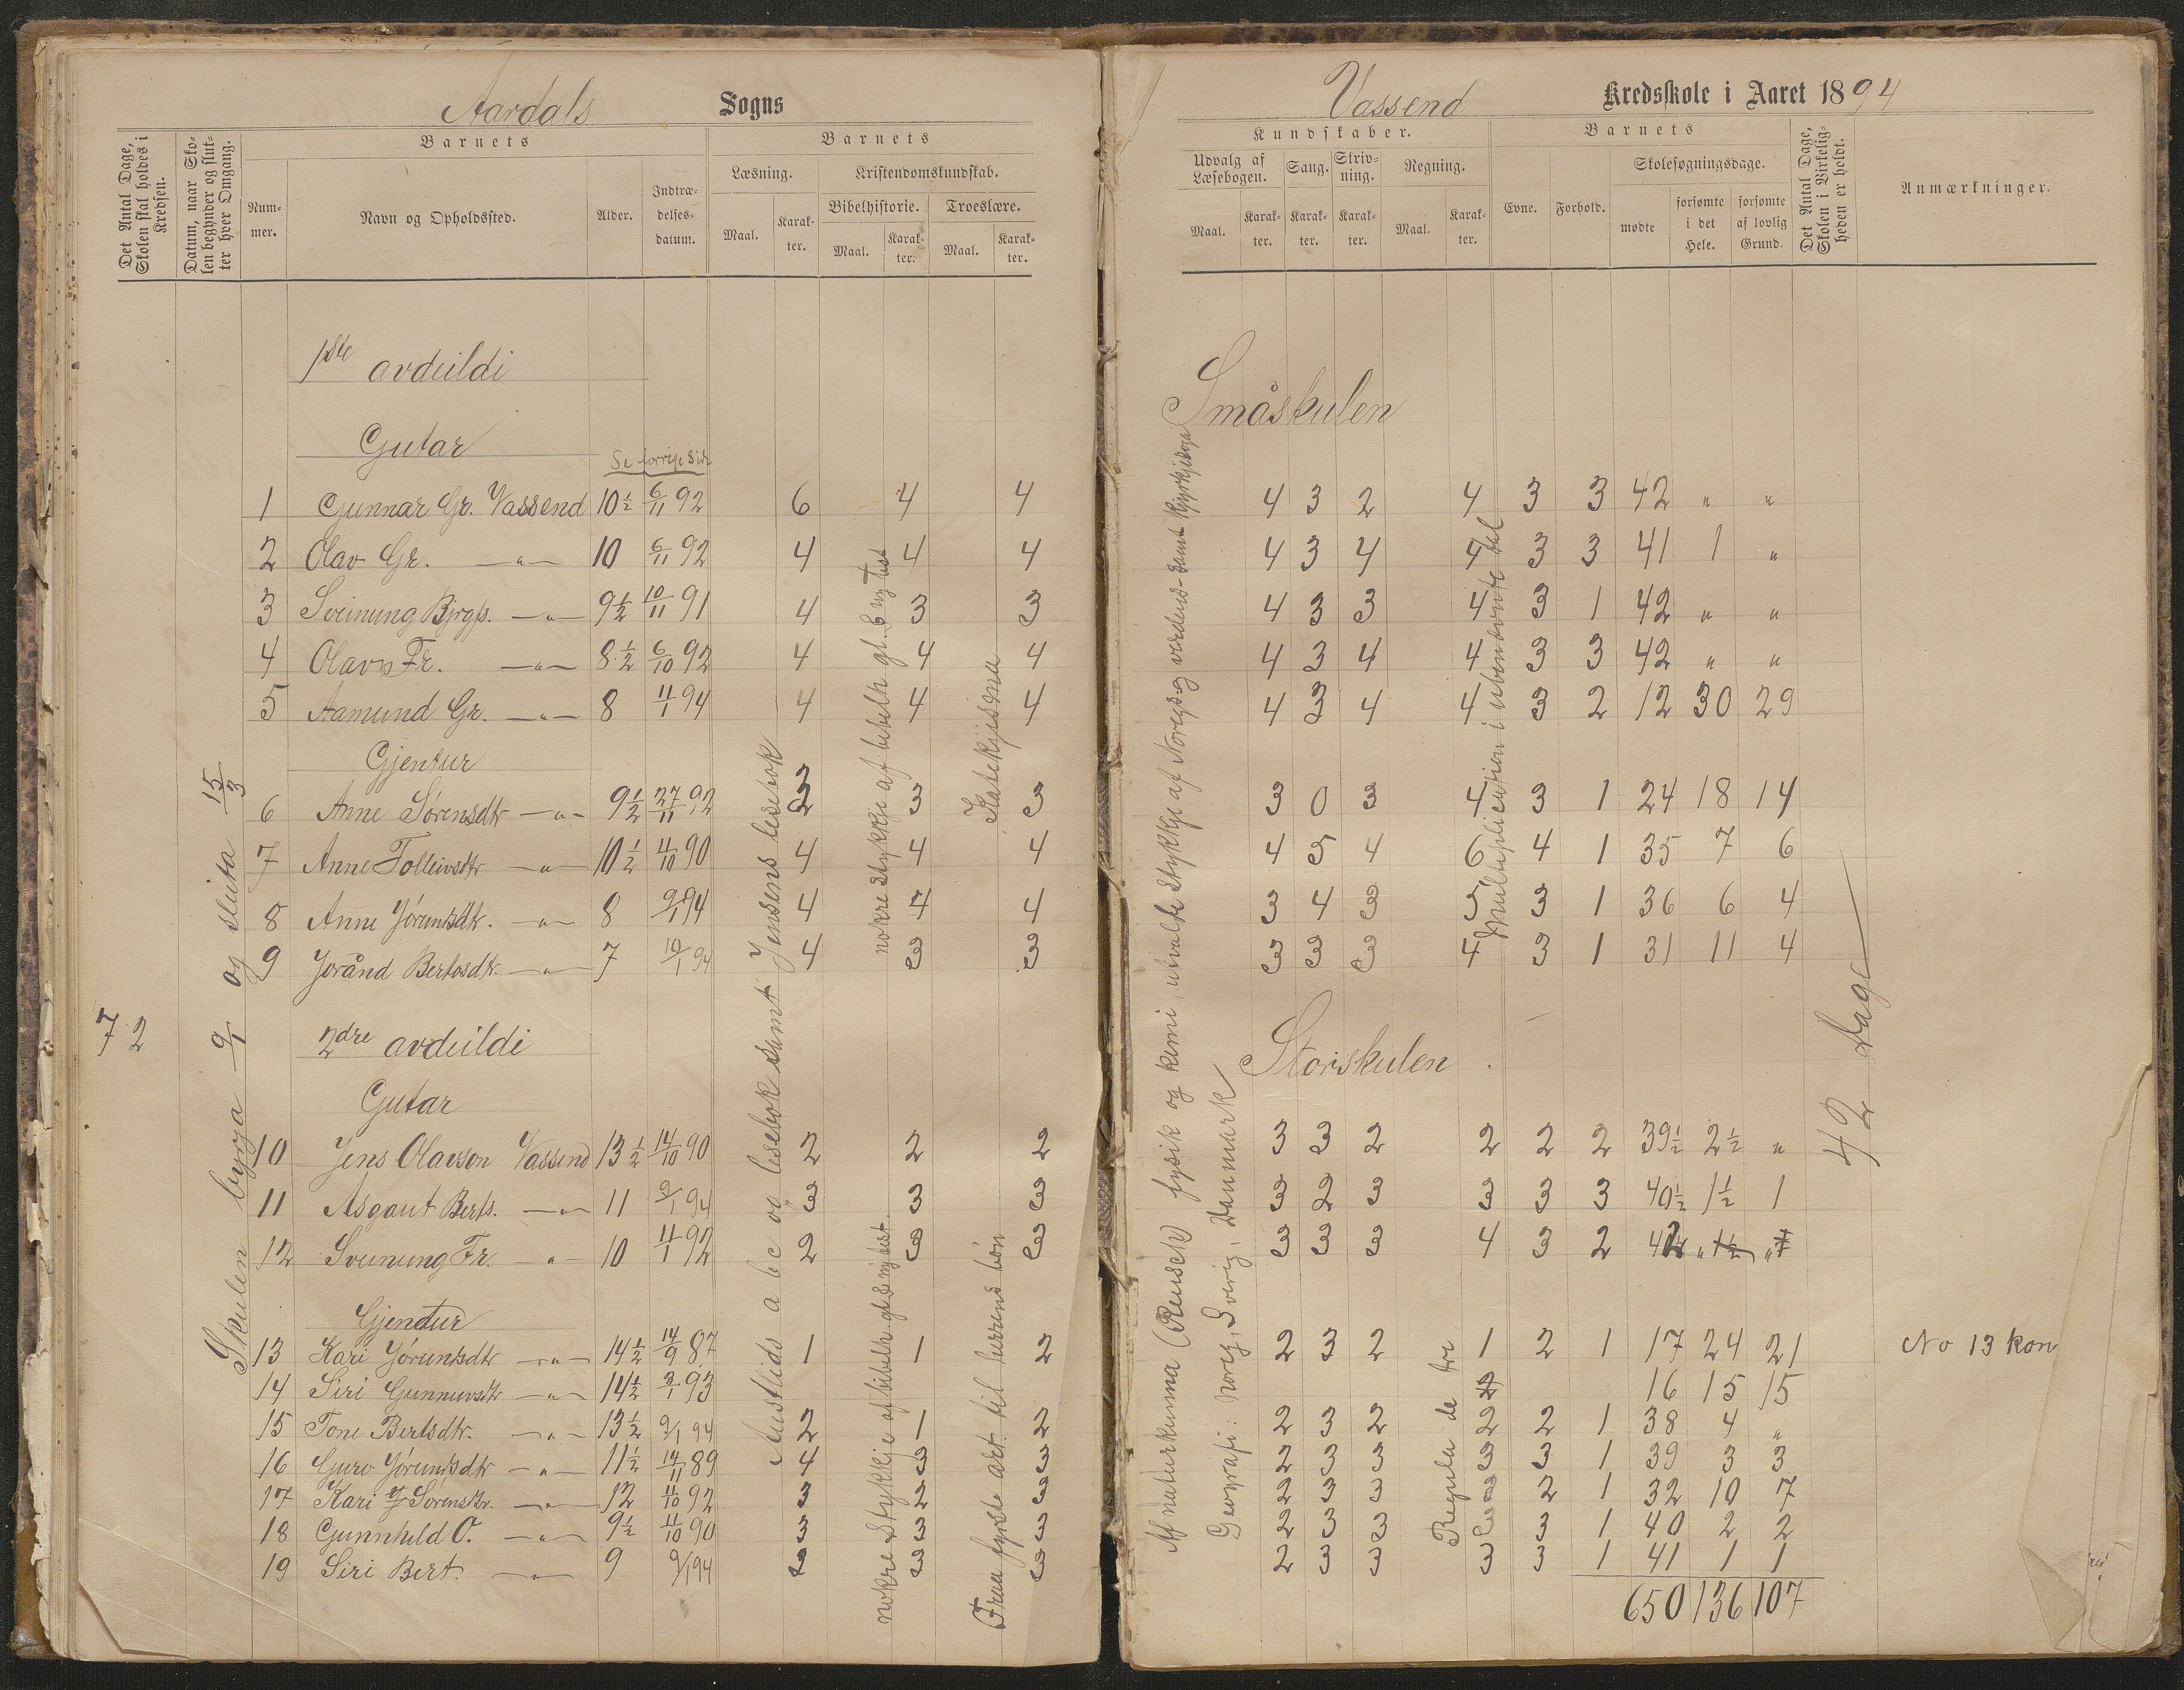 Aardals Sogns
Det Antal Dage, Skolen skal holdes i Kredsen.
Datum, naar Skolen begynder og slutter hver Omgang.
Barnets
Nummer.
Navn og Opholdssted.
Alder.
Indtrædelsesdatum.
Barnets
Læsning.
Maal.
Karakter.
Kristendomskundskab.
Bibelhistorie.
Maal.
Karakter.
Troeslære.
Maal.
Karakter.
1ste avdeildi
Gutar
Se forrige side
1 Gunnar Gr. Vassend 10½ 6/11 92 6 4 4
2 Olav Gr. —"— 10 6/11 92 4 4 4
3 Sveinung Bjrgs. —"— 9½ 10/11 91 4 3 3
4 Olav Fr. —"— 8½ 6/10 92 4 4 4
5 Aamund Gr. —"— 8 11/1 94 4 4 4
Gjentur
6 Anne Sørensdtr —"— 9½ 27/11 92 3 3 3
7 Anne Tolleivsdtr —"— 10½ 11/10 90 4 4 4
8 Anne Jørundsdtr. —"— 8 9/1 94 4 4 4
9 Jorånd Bertosdtr. —"— 7 10/1 94 4 3 3
72
Skulen byrja 9/1 og sluta 15/3
2dre avdeildi
Gutar
10 Jens Olavson Vassend 13½ 14/10 90 2 2 2
11 Asgaut Berts. —"— 11 9/1 94 3 3 3
12 Sveinung Fr. —"— 10 11/1 92 2 3 3
Gjentur
13 Kari Jørundsdtr —"— 14½ 14/9 87 1 1 2
14 Siri Gunnuvsdtr —"— 14½ 3/1 93
15 Tone Bertsdtr. —"— 13½ 9/1 94 2 1 2
16 Guro Jørundsdtr —"— 11½ 14/11 89 4 3 3
17 Kari Sørensdtr. —"— 12 11/10 92 3 2 3
18 Gunnhild O. —"— 9½ 11/10 90 3 3 3
19 Siri Bert. —"— 9 9/1 94 3 3 3
Austlids a b c og lesebok samt Jensens lesebok
nokre stykkje af bibelh gl. & ny test
Katekjisma
nokre stykkje af bibelh gl & ny test.
Fraa fyrste art. til herrens bön
Vassend Kredsskole i Aaret 1894
Kundskaber.
Udvalg af Læsebogen.
Maal.
Karakter.
Sang.
Karakter.
Skrivning.
Karakter.
Regning.
Maal.
Karakter.
Barnets
Evne.
Forhold.
Skolesøgningsdage.
mødte
forsømte i det Hele.
forsømte af lovlig Grund.
Det Antal Dage, Skolen i Virkeligheden er holdt.
Anmærkninger.
Småskulen
4 3 2 4 3 3 42 " "
4 3 4 4 3 3 41 1 "
4 3 3 4 3 1 42 " "
4 3 4 4 3 3 42 " "
4 3 4 4 3 2 12 30 29
3 0 3 4 3 1 24 18 14
4 5 4 6 4 1 35 7 6
3 4 3 5 3 1 36 6 4
3 3 3 4 3 1 31 11 4
Storskulen
3 3 2 2 2 2 39½ 2½ "
3 2 3 3 3 3 40½ 1½ 1
3 3 3 4 3 2 42 " "
2 3 2 1 2 1 17 24 21 No 13 kon
16 15 15
2 3 2 2 2 1 38 4 "
2 3 3 3 3 1 39 3 3
2 3 3 3 2 1 32 10 7
2 3 3 3 3 1 40 2 2
2 3 3 3 3 1 41 1 1
650 136 107
Af naturkunna (Reusch) fysik og kemi, utvalde stykkje af Noregs og verdens samt kyrkjesoga
Geografi: Noreg, Sverig, Danmark
Multiplication i ubenevnte tal
Regula de tri
42 dage